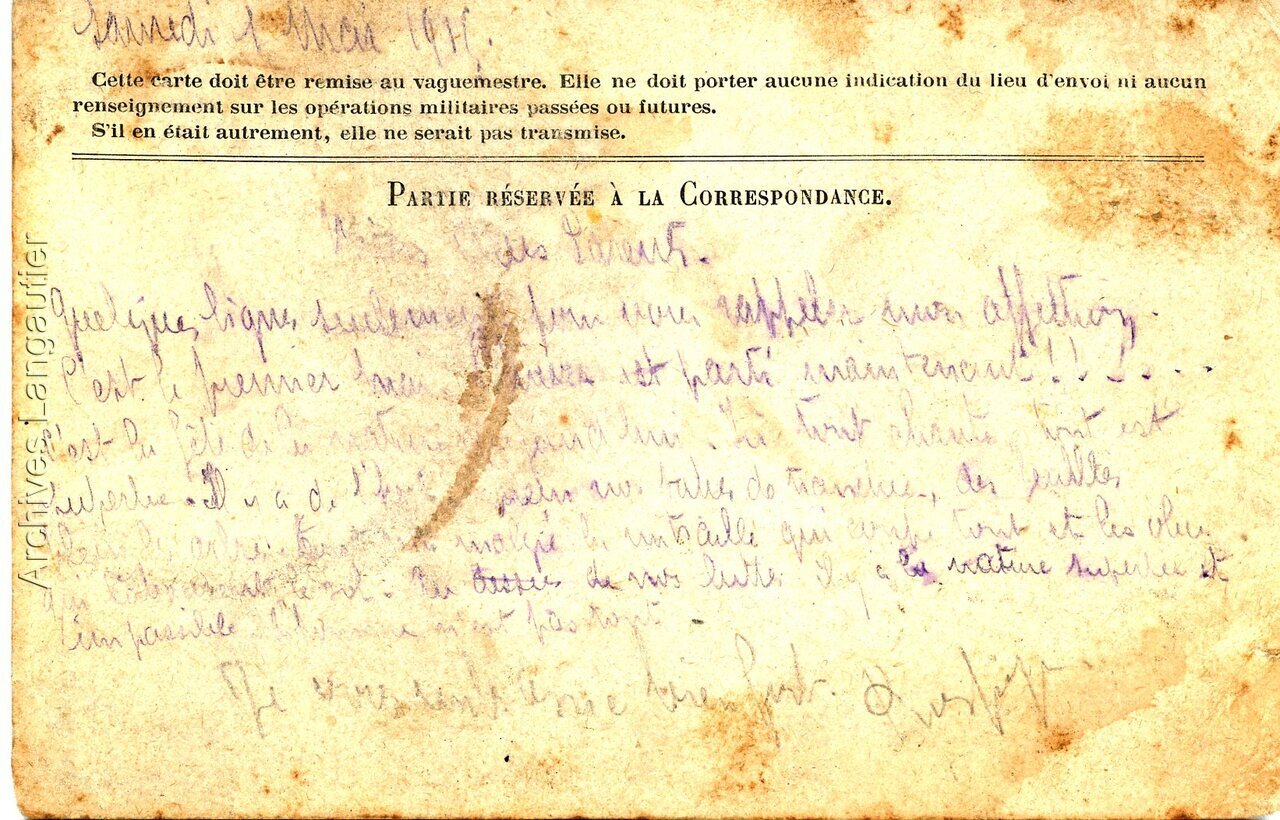 Samedi 1 Mai 1915.
Cette carte doit être remise au vaguemestre. Elle ne doit porter aucune indication du lieu d'envoi ni aucun
renseignement sur les opérations militaires passées ou futures.
S'il en était autrement, elle ne serait pas transmise.
PARTIE RÉSERVÉE À LA CORRESPONDANCE.
Parents.
Quelques lignes seulement pour vous rappeler mon affection.
C'est le premier mai est parti maintenant !!!...
C'est la fête de la nature tout chante, tout est
superbe. Il y a de plein nos talus de tranchée, des feuilles
malgré la mitraille qui coupe tout et les obus
qui le sol. de nos luttes il y a la nature superbe et
impassible. L'homme n'est pas tout
Je vous bien fort.
Archives Langautier